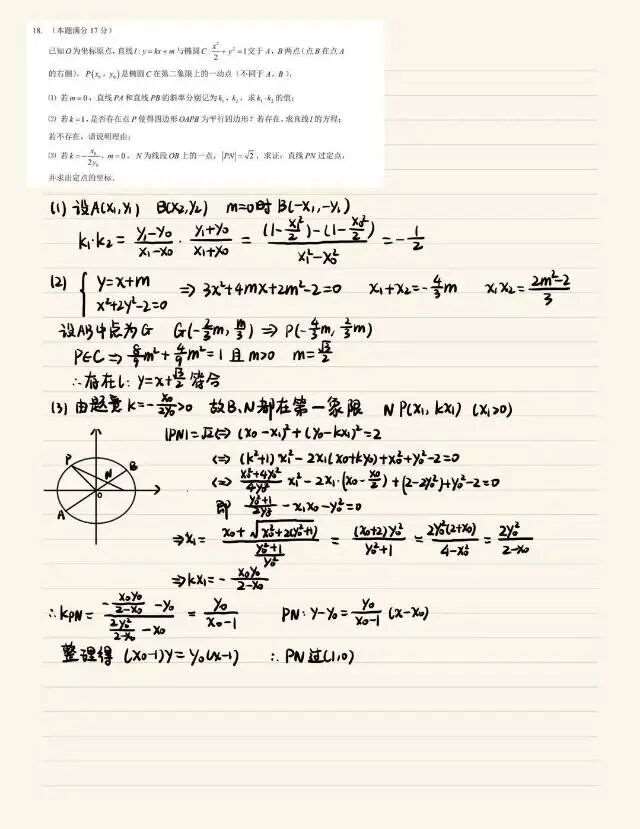 18. （本题满分 17 分）
已知 O 为坐标原点，直线 l : y = kx + m 与椭圆 C : x²/2 + y² = 1 交于 A，B 两点（点 B 在点 A
的右侧），P(x₀, y₀) 是椭圆 C 在第二象限上的一动点（不同于 A，B）.
(1) 若 m = 0，直线 PA 和直线 PB 的斜率分别记为 k₁, k₂，求 k₁·k₂ 的值；
(2) 若 k = 1，是否存在点 P 使得四边形 OAPB 为平行四边形？若存在，求直线 l 的方程；
若不存在，请说明理由；
(3) 若 k = -x₀/2y₀，m = 0，N 为线段 OB 上的一点，|PN| = √2，求证：直线 PN 过定点，
并求出定点的坐标.
(1) 设A(x₁,y₁) B(x₂,y₂) m=0时 B(-x₁,-y₁)
k₁·k₂ = (y₁-y₀)/(x₁-x₀) · (y₁+y₀)/(x₁+x₀) = ((1-x₁²/2)-(1-x₀²/2))/(x₁²-x₀²) = -1/2
(2) { y=x+m
x²+2y²-2=0 ⇒ 3x²+4mx+2m²-2=0 x₁+x₂=-4/3m x₁x₂=(2m²-2)/3
设AB中点为G G(-2/3m, m/3) ⇒ P(-4/3m, 2/3m)
P∈C ⇒ 8/9m²+4/9m²=1 且 m>0 m=√3/2
∴存在l: y=x+√3/2 符合
(3) 由题意 k=-x₀/2y₀>0 故B、N都在第一象限 N P(x₁, kx₁) (x₁>0)
|PN|=√2 ⇔ (x₀-x₁)²+(y₀-kx₁)²=2
⇔ (k²+1)x₁²-2x₁(x₀+ky₀)+x₀²+y₀²-2=0
⇔ (x₀²+4y₀²)/4y₀² x₁²-2x₁·(x₀-x₀/2)+(2-2y₀²)+y₀²-2=0
即 (y₀²+1)/2y₀² -x₁x₀-y₀²=0
⇒x₁= (x₀+√(x₀²+2(y₀²+1)))/((y₀²+1)/y₀²) = (x₀+2)y₀²/(y₀²+1) = 2y₀²(2+x₀)/(4-x₀²) = 2y₀²/(2-x₀)
⇒kx₁=-x₀y₀/(2-x₀)
∴k_PN= (-x₀y₀/(2-x₀) -y₀)/(2y₀²/(2-x₀) -x₀) = y₀/(x₀-1) PN: y-y₀=y₀/(x₀-1) (x-x₀)
整理得 (x₀-1)y=y₀(x-1) ∴PN过(1,0)
P
N
B
O
A